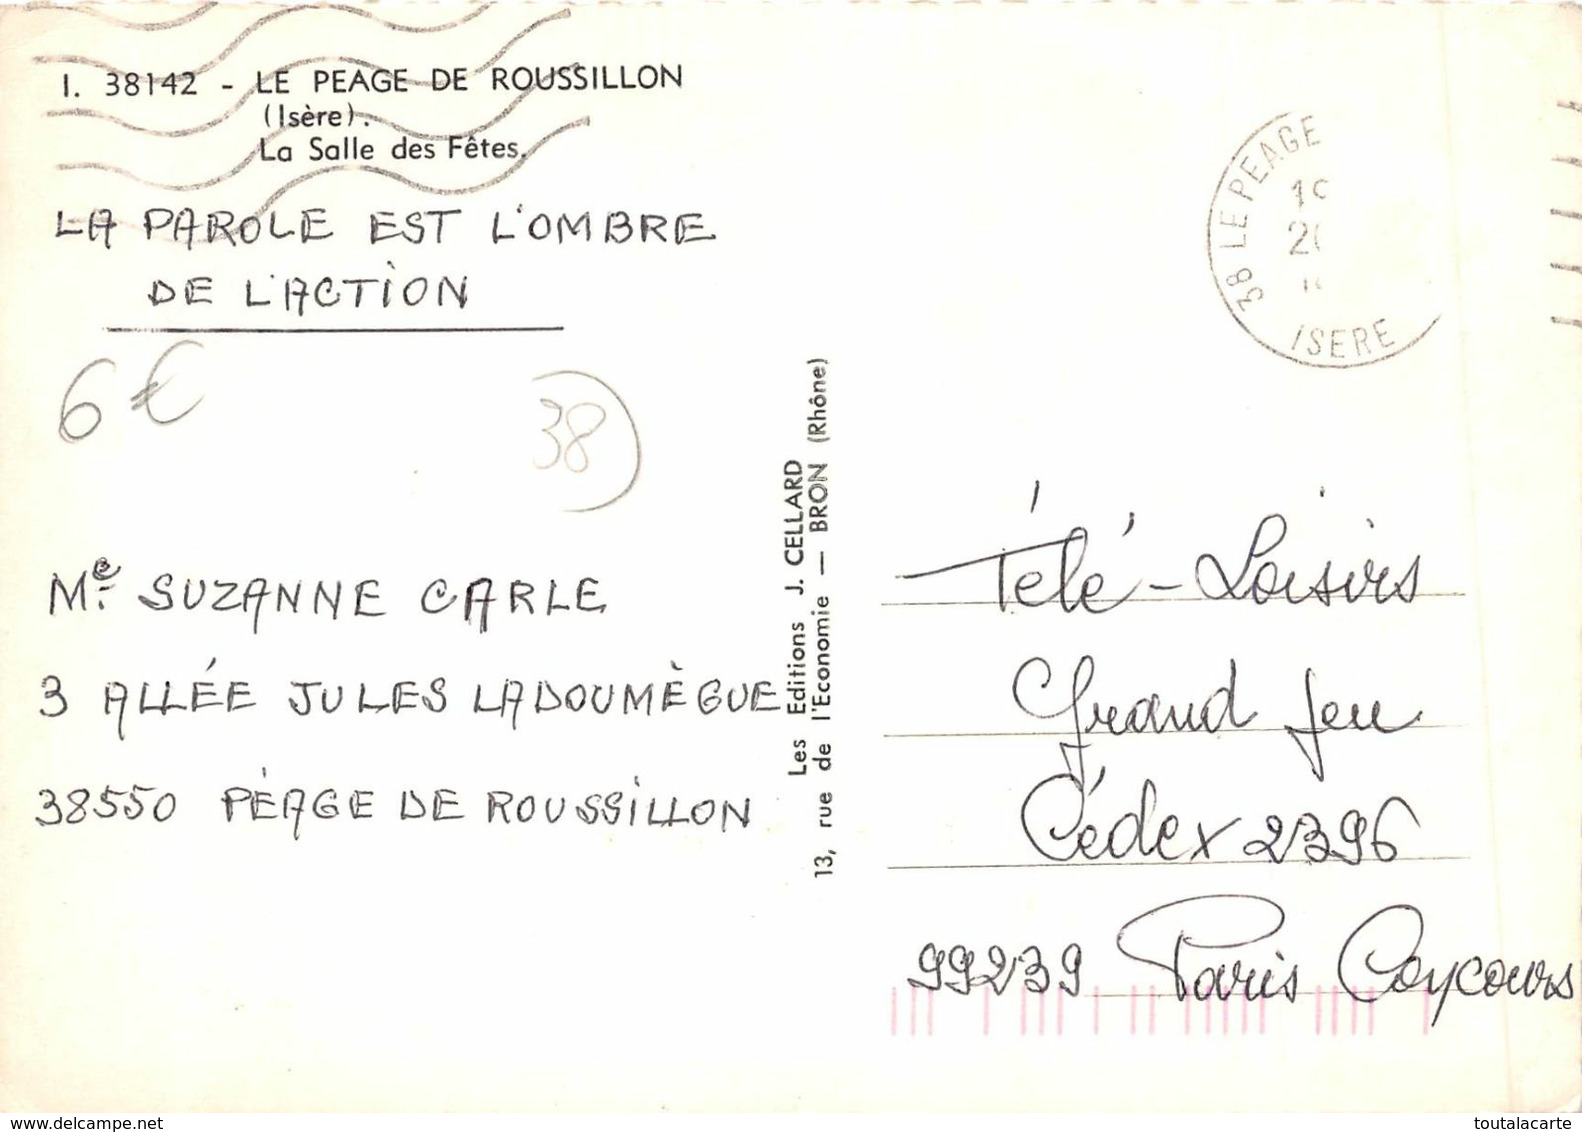 I. 38142 - LE PEAGE DE ROUSSILLON
(Isère).
La Salle des Fêtes.
LA PAROLE EST L'OMBRE
DE L'ACTION
6 €
38
Me. SUZANNE CARLE
3 ALLÉE JULES LADOUMÈGUE
38550 PÉAGE DE ROUSSILLON
Les Editions J. CELLARD
13, rue de l'Economie — BRON (Rhône)
38 LE PEAGE
ISERE
Télé-Loisirs
Grand Jeu
Cédex 2396
99239 Paris Coycours
www.delcampe.net
toutalacarte